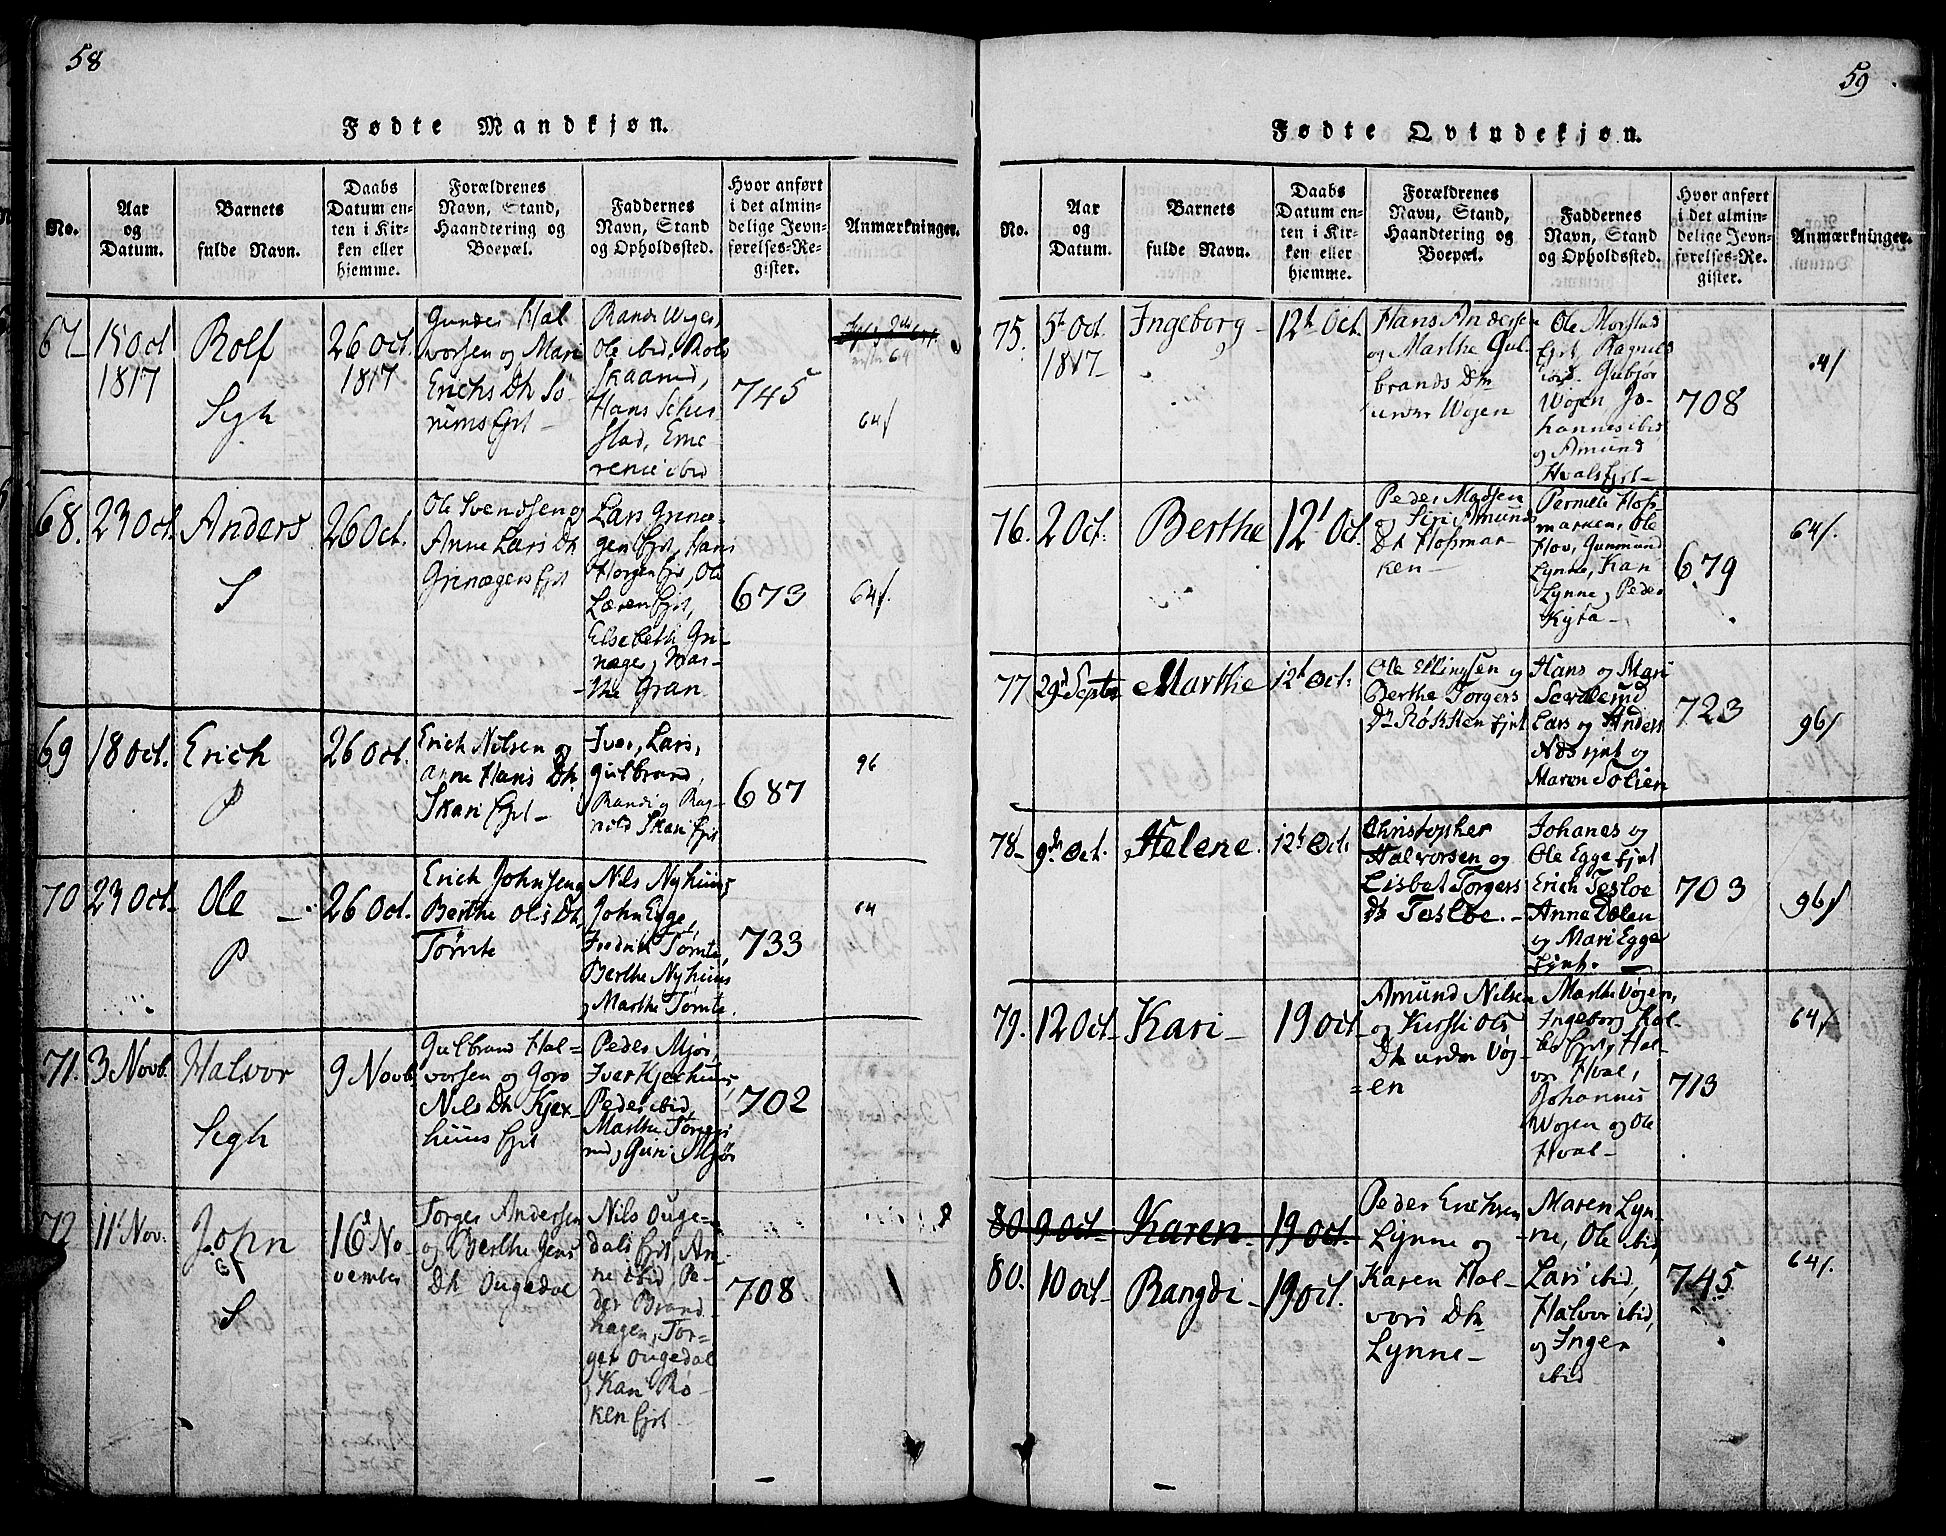 58
Fødte Mandkjøn.
No.
Aar
og
Datum.
Barnets
fulde Navn.
Daabs
Datum en-
ten i Kir-
ken eller
hjemme.
Forældrenes
Navn, Stand,
Haandtering og
Boepæl.
Faddernes
Navn, Stand
og Opholdssted.
Hvor anført
i det almin-
delige Jevn-
førelses-Re-
gister.
Anmærkninger.
67
15 Oct
1817
Rolf
Segh
26 Oct.
1817
Gunder Hal
vorsen og Mari
Erichs Dtr Sø-
rums Ejet
Ole ibid, Rolf
Skaarud,
Hans
stad, Eme
rense ibid
745
64
64/
68.
23 Oct.
Anders
S
26 Oct.
Ole Svendsen og
Anne Lars Dtr
Grinagers Ejet
Lars Grina-
gerEjet, Hans
HorgenEjet, Ole
LærenEjet,
Elsebeth Gri-
nager, Mar-
the Gran
673
64/.
69
18 Oct.
Erich
P
26 Oct.
Erich Nilsen og
Anne Hans Dtr.
Skari Ejet
Iver, Lars,
Gulbrand,
Randi og Rag-
nild Skari Ejet
687
96
70
23 Oct.
Ole
P
26 Oct.
Erich Johnsen og
Berthe Ols Dtr.
Tømte
Nils Nyhuus
John Egge,
Fredrik Tømte,
Berthe Nyhuus
og Marthe Tømte.
733
64
71.
3 Novb.
Halvor
Segh
9 Novb
Gulbrand Hal-
vorsen og Goro
Nils Dtr Kjex-
huus Ejet
Peder Mjør,
Iver Kjexhuus,
Peder ibid,
Marthe
rud, Guri Mjør
702
72
11t Nov.
John
S
16 No-
vember
Torger Andersen
og Berthe Jens
Dtr Ougedal
Nils Ouge-
dals Ejet, An-
ne ibid, Pe-
der Brand
hagen, Tor-
ger Ougedal
og Kari Rø-
ken Ejet
708
59
Fødte Qvindekjøn.
No.
Aar
og
Datum.
Barnets
fulde Navn.
Daabs
Datum en-
ten i Kir-
ken eller
hjemme.
Forældrenes
Navn, Stand,
Haandtering og
Boepæl.
Faddernes
Navn, Stand
og Opholdssted.
Hvor anført
i det almin-
delige Jevn-
førelses-Re-
gister.
Anmærkninger.
75.
5t Oct.
1817
Ingeborg
12t Oct.
Hans Andersen
og Marthe Gul-
brands Dtr
under Wøjen
Ole Morstad
Ejet, Ragnild
ibid. Gubjør
Wøjen, Jo-
hannes ibid
og Amund
Hvals Ejet
708
76.
2 Oct.
Berthe
12t Oct.
Peder Madsen
og Siri Amunds
Dtr Hofsmar-
ken
Pernille Hofs-
marken, Ole
Hov, Gunmund
Lynne, Kari
Lynne, Peder
Kyta
679
64/.
77
29d Septr
Marthe
12t Oct.
Ole Ellingsen og
Berthe Torgers
Dr Røkken Ejet
Hans og Mari
Sævlerud
Lars og Anders
Næs Ejet og
Maren Solien
723
96/
78
9de Oct.
Helene
12t Oct.
Christopher
Halvorsen og
Lisbet Torgers
Dtr Tesløe.
Johanes og
Ole Egge Ejet
Erich Tesløe
Anne Dølen
og Mari Egge
Ejet.
703
96/
79.
12 Oct.
Kari
19 Oct.
Amund Nilsen
og Kirsti Ols
Dtr under Vøj-
en
Marthe Vøjen,
Ingeborg
Hal-
vor Hval,
Johannes
Wøjen og Ole
Hval
713
64/
80. 9 Oct. Karen 19 Oct.
80.
10 Oct.
Rangdi
19 Oct.
Peder Erichsen
Lynne og
Karen Hal-
vors Dtr
Lynne
Maren Lyn-
ne, Ole ibid,
Lars ibid,
Halvor ibid,
og Inger
ibid
745
64/.